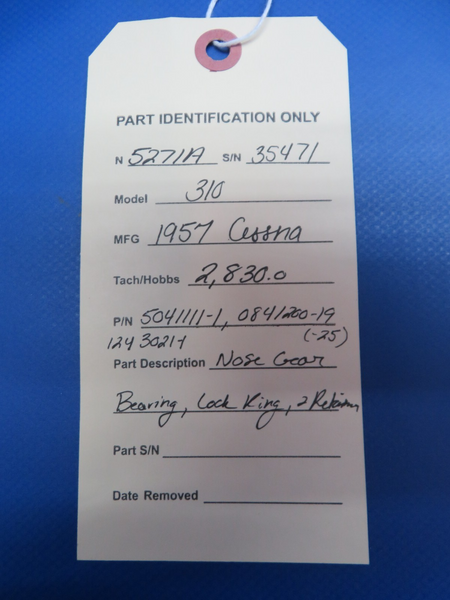 PART IDENTIFICATION ONLY
N 5271A S/N 35471
Model 310
MFG 1957 Cessna
Tach/Hobbs 2,830.0
P/N 5041111-1, 0841200-19
1243021-1 (-25)
Part Description Nose Gear
Bearing, Lock Ring, 2
Part S/N
Date Removed